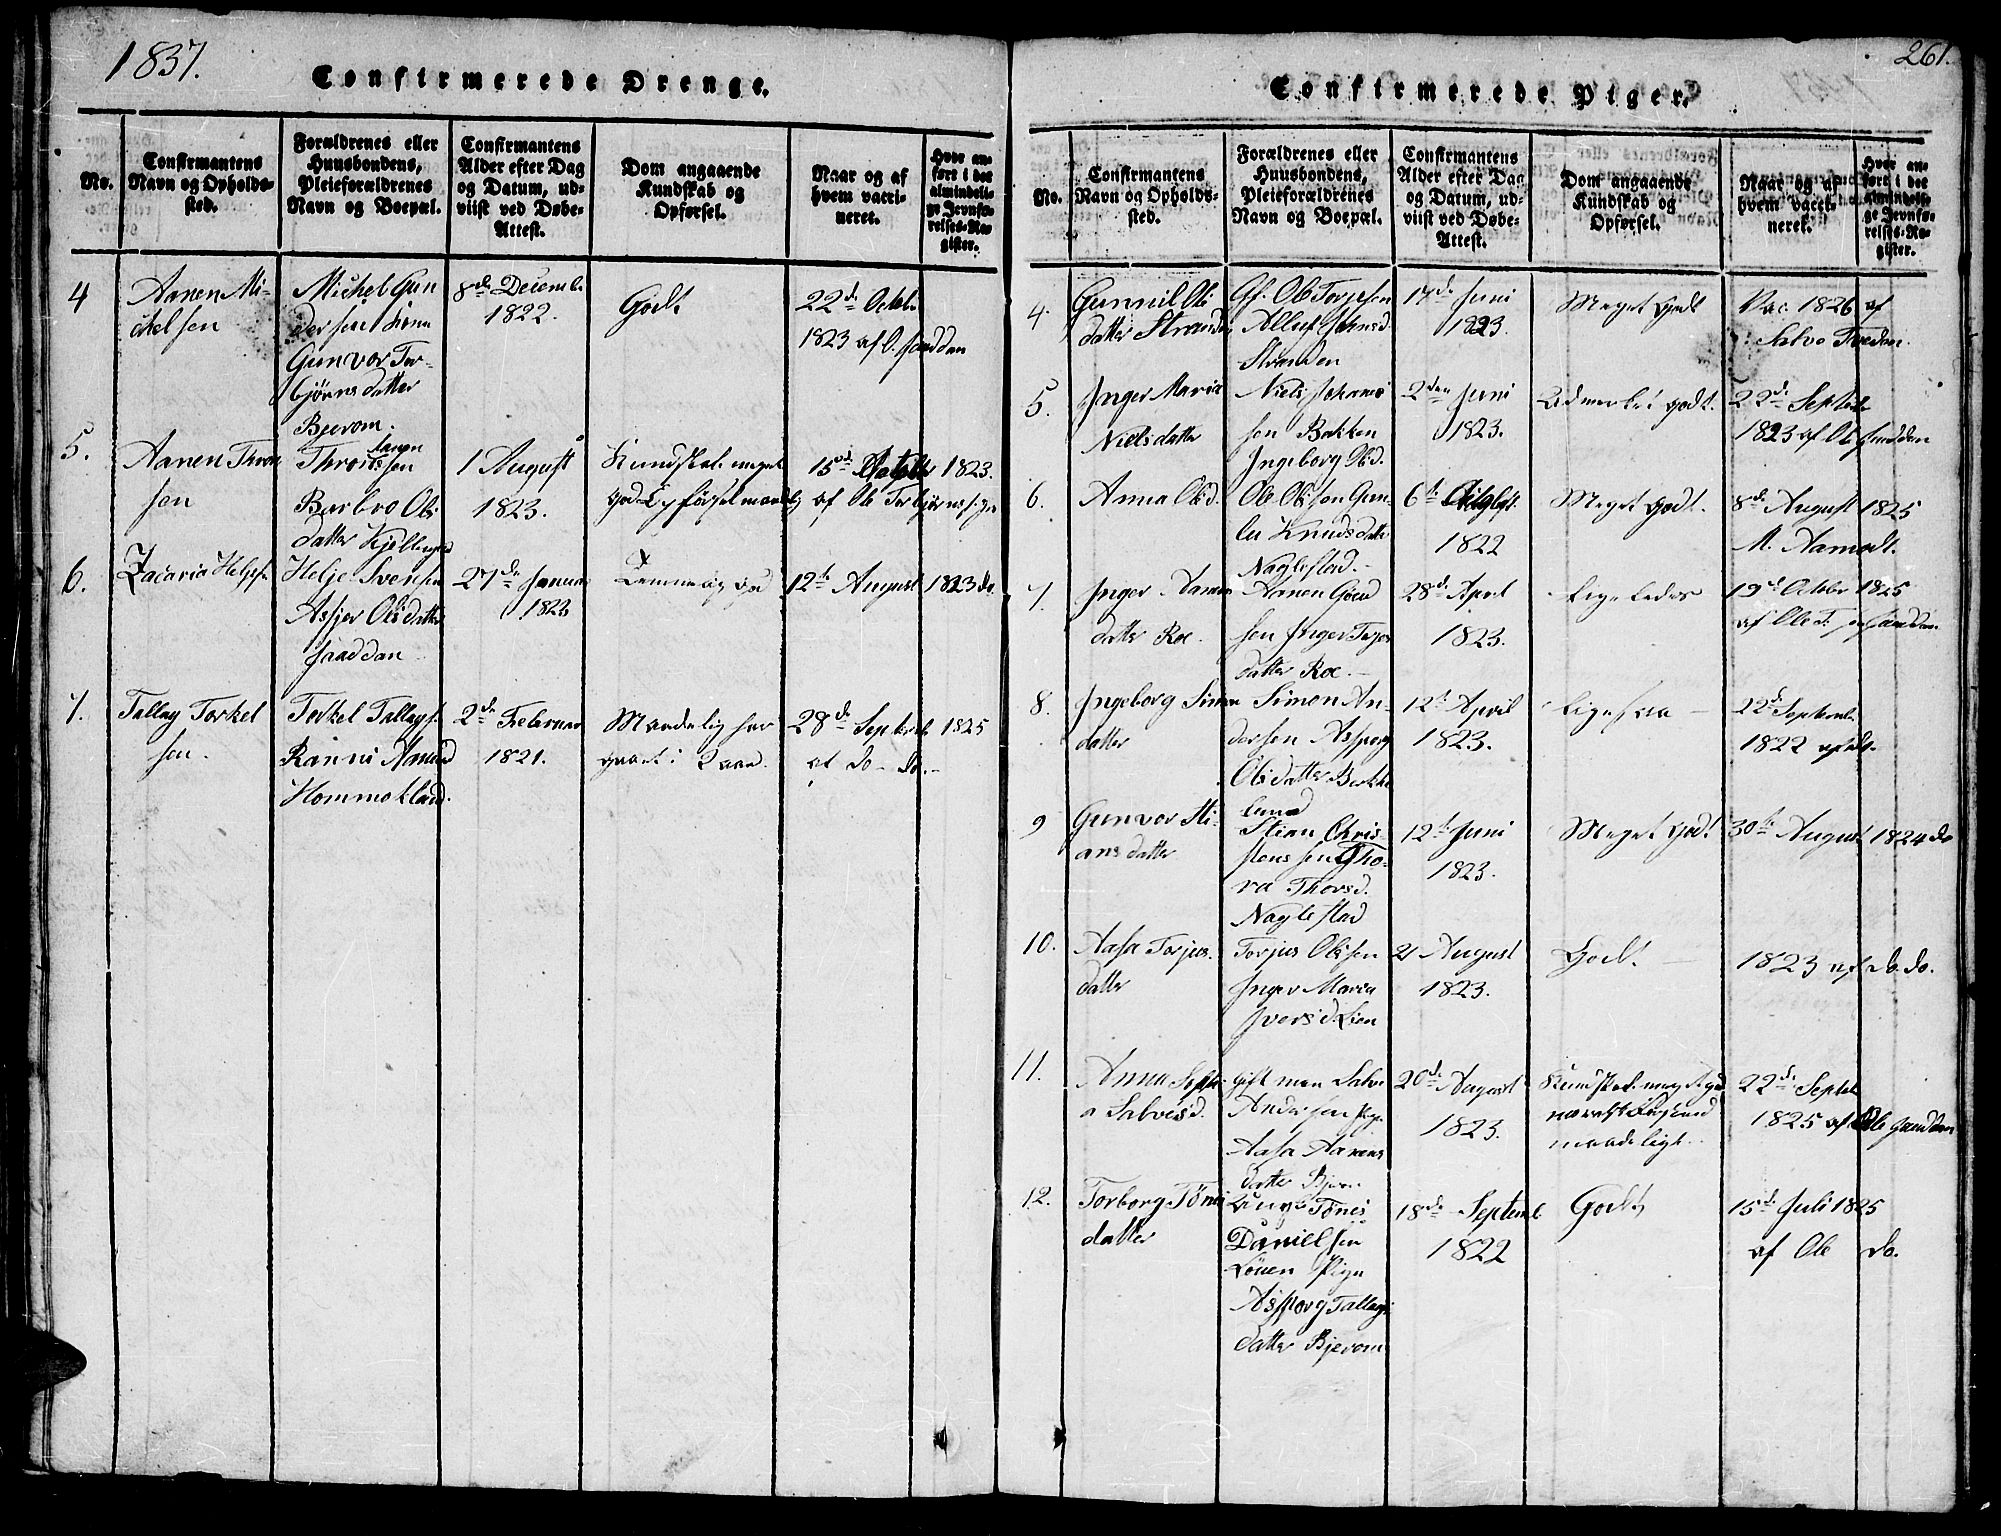 1837.
Confirmerede Drenge.
No.
Confirmantens
Navn og Opholds-
sted.
Forældrenes eller
Huusbondens,
Pleieforældrenes
Navn og Boepæl.
Confirmantens
Alder efter Dag
og Datum, ud-
viist ved Døbe-
Attest.
Dom angaaende
Kundskab og
Opførsel.
Naar og af
hvem vacci-
neret.
Hvor an-
ført i det
almindeli-
ge Jevnfø-
relses-Re-
gister.
4
Aanen Mi-
chelsen
Michel Gun
dersen
Gunvor Tor-
bjørnsdatter
Bjerom.
8de Decemb.
1822.
Godt
22de Octob.
1823 af O. Jaaddan
5.
Aanen Thron
sen
Thrond Aanen
sen
Barbro Ols
datter
1 August
1823.
Kundskab meget
god Opførsel maadelig
15de Octob. 1823.
af Ole Torbjørns.
6.
Zacaria Heljes.
Helje Svensen
Asjer Olsdatter
Jaaddan
27de Januar
1823
Temmelig god
12te August 1823 do.
7.
Tallag Torkel
sen.
Torkel Tallags.
Ranni
Hommekland.
2de Februar
1821.
Maadelig har
gaaet i 2 aar.
28de Septemb 1825
af do- do.-
261.
Confirmerede Piger.
No.
Confirmantens
Navn og Opholds-
sted.
Forældrenes eller
Huusbondens,
Pleieforældrenes
Navn og Boepæl.
Confirmantens
Alder efter Dag
og Datum, ud-
viist ved Døbe-
Attest.
Dom angaaende
Kundskab og
Opførsel.
Naar og af
hvem vacci-
neret.
Hvor an-
ført i det
almindeli-
ge Jevnfø-
relses-Re-
gister.
4.
Gunnil Ols
datter Stranden
Gf. Ole Torjusen
Johnsd.
Stranden
17de Juni
1823.
Meget godt
Vac. 1826 af
Salve Tvedan.
5.
Inger Maria
Nielsdatter
Niels Johannes
sen Bakken
Ingeborg Olsd.
2den Juni
1823.
Udmerket godt.
22de Septbr
1823 af Ole Jaaddan
6.
Anna Olsd.
Ole Olsson Gun-
Knudsdatter
Naglestad.-
6te
1822
Meget godt.
8de August 1825
M. Aamodt.
7.
Inger Aanen
datter Roe.
Aanen
sen Inger Torjus
datter Roe.-
28de April
1823.
Ligeledes
19de Octobr 1825
af Ole T. Jaaddan
8.
Ingeborg Simon
datter
Simon An-
dersen Asperg
Olsdatter Birke
land
12te April
1823.
Ligesaa -
22de Septemb.
1822 af do.
9
Gunvor Sti-
ansdatter
Stian Chris-
stensen Tho-
ra Thorsd.
Naglestad
12te Juni
1823.
Meget godt
30te August 1824 do
10.
Aasa Torjus.
datter
Torjus Olsen
Inger Maria
Iversd. Lien
21 August
1823.
Godt. -
1823 af do. do.
11.
Anna
Salvesd.
gift man Salve
Andersen Pige
Aasa Aanens
datter Bjerom
20de August
1823.
Kundskab meget god
maadeligt.
22de Septb.
1825 af Ole Jaaddan
12.
Torborg Tønnes
datter
Ungk. Tønnes
Danielsen
Løuen Pige
Asborg Tallags
datter Bjerom
18de Septemb.
1822
Godt
15de Juli 1825
af Ole do.